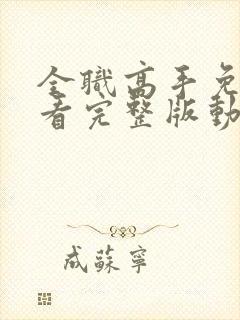 全職高手免
看完整版動
成蘇寧